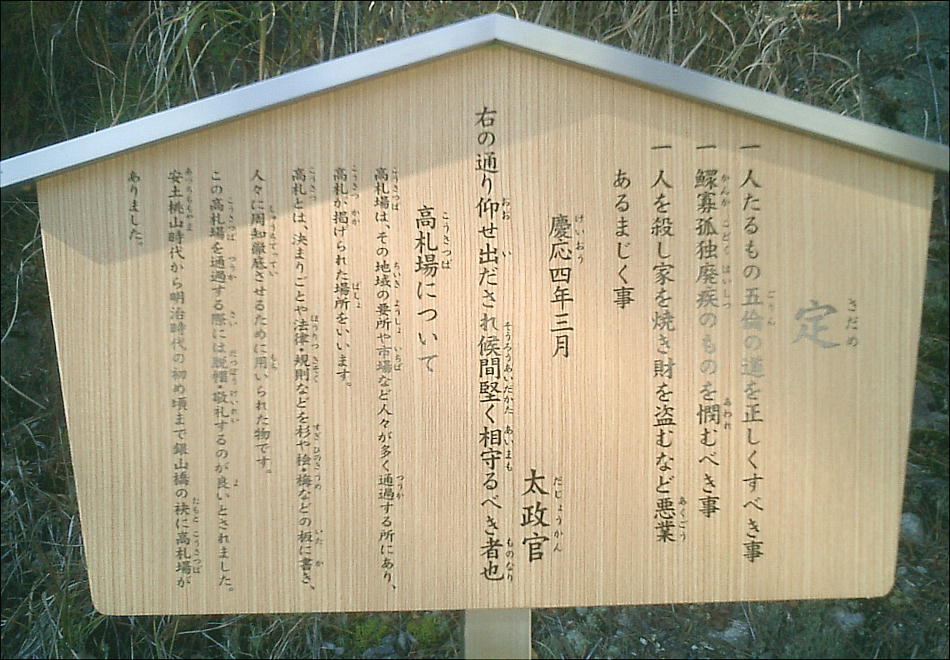 定
一 人たるもの五倫の道を正しくすべき事
一 鰥寡孤独廃疾のものを憫むべき事
一 人を殺し家を焼き財を盗むなど悪業
あるまじく事
慶応四年三月
太政官
右の通り仰せ出だされ候間堅く相守るべき者也
高札場について
高札場は、その地域の要所や市場など人々が多く通過する所にあり、
高札が掲げられた場所をいいます。
高札とは、決まりごとや法律・規則などを杉や桧・梅などの板に書き、
人々に周知徹底させるために用いられた物です。
この高札場を通過する際には脱帽・敬礼するのが良いとされました。
安土桃山時代から明治時代の初め頃まで銀山橋の袂に高札場が
ありました。